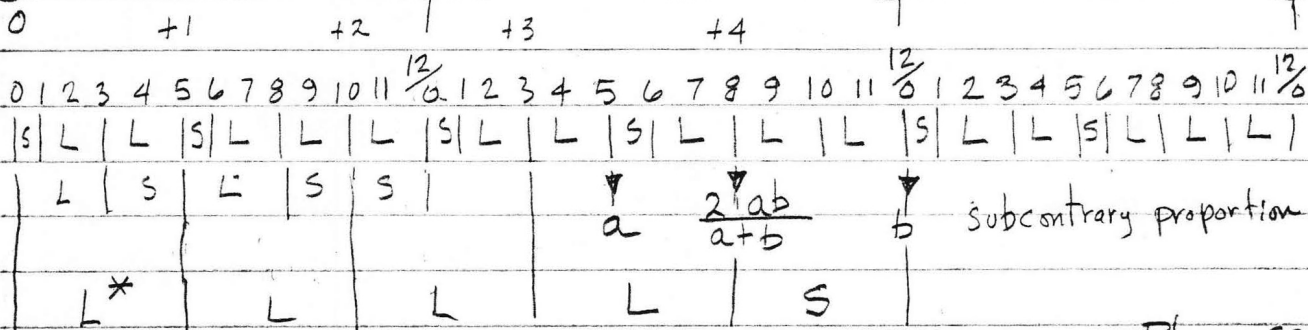 0 +1 +2 +3 +4
0 1 2 3 4 5 6 7 8 9 10 11 12/0 1 2 3 4 5 6 7 8 9 10 11 12/0 1 2 3 4 5 6 7 8 9 10 11 12/0
S L L S L L L S L L S L L L S L L S L L L
L S L S S a 2ab/a+b b subcontrary proportion
L* L L L S